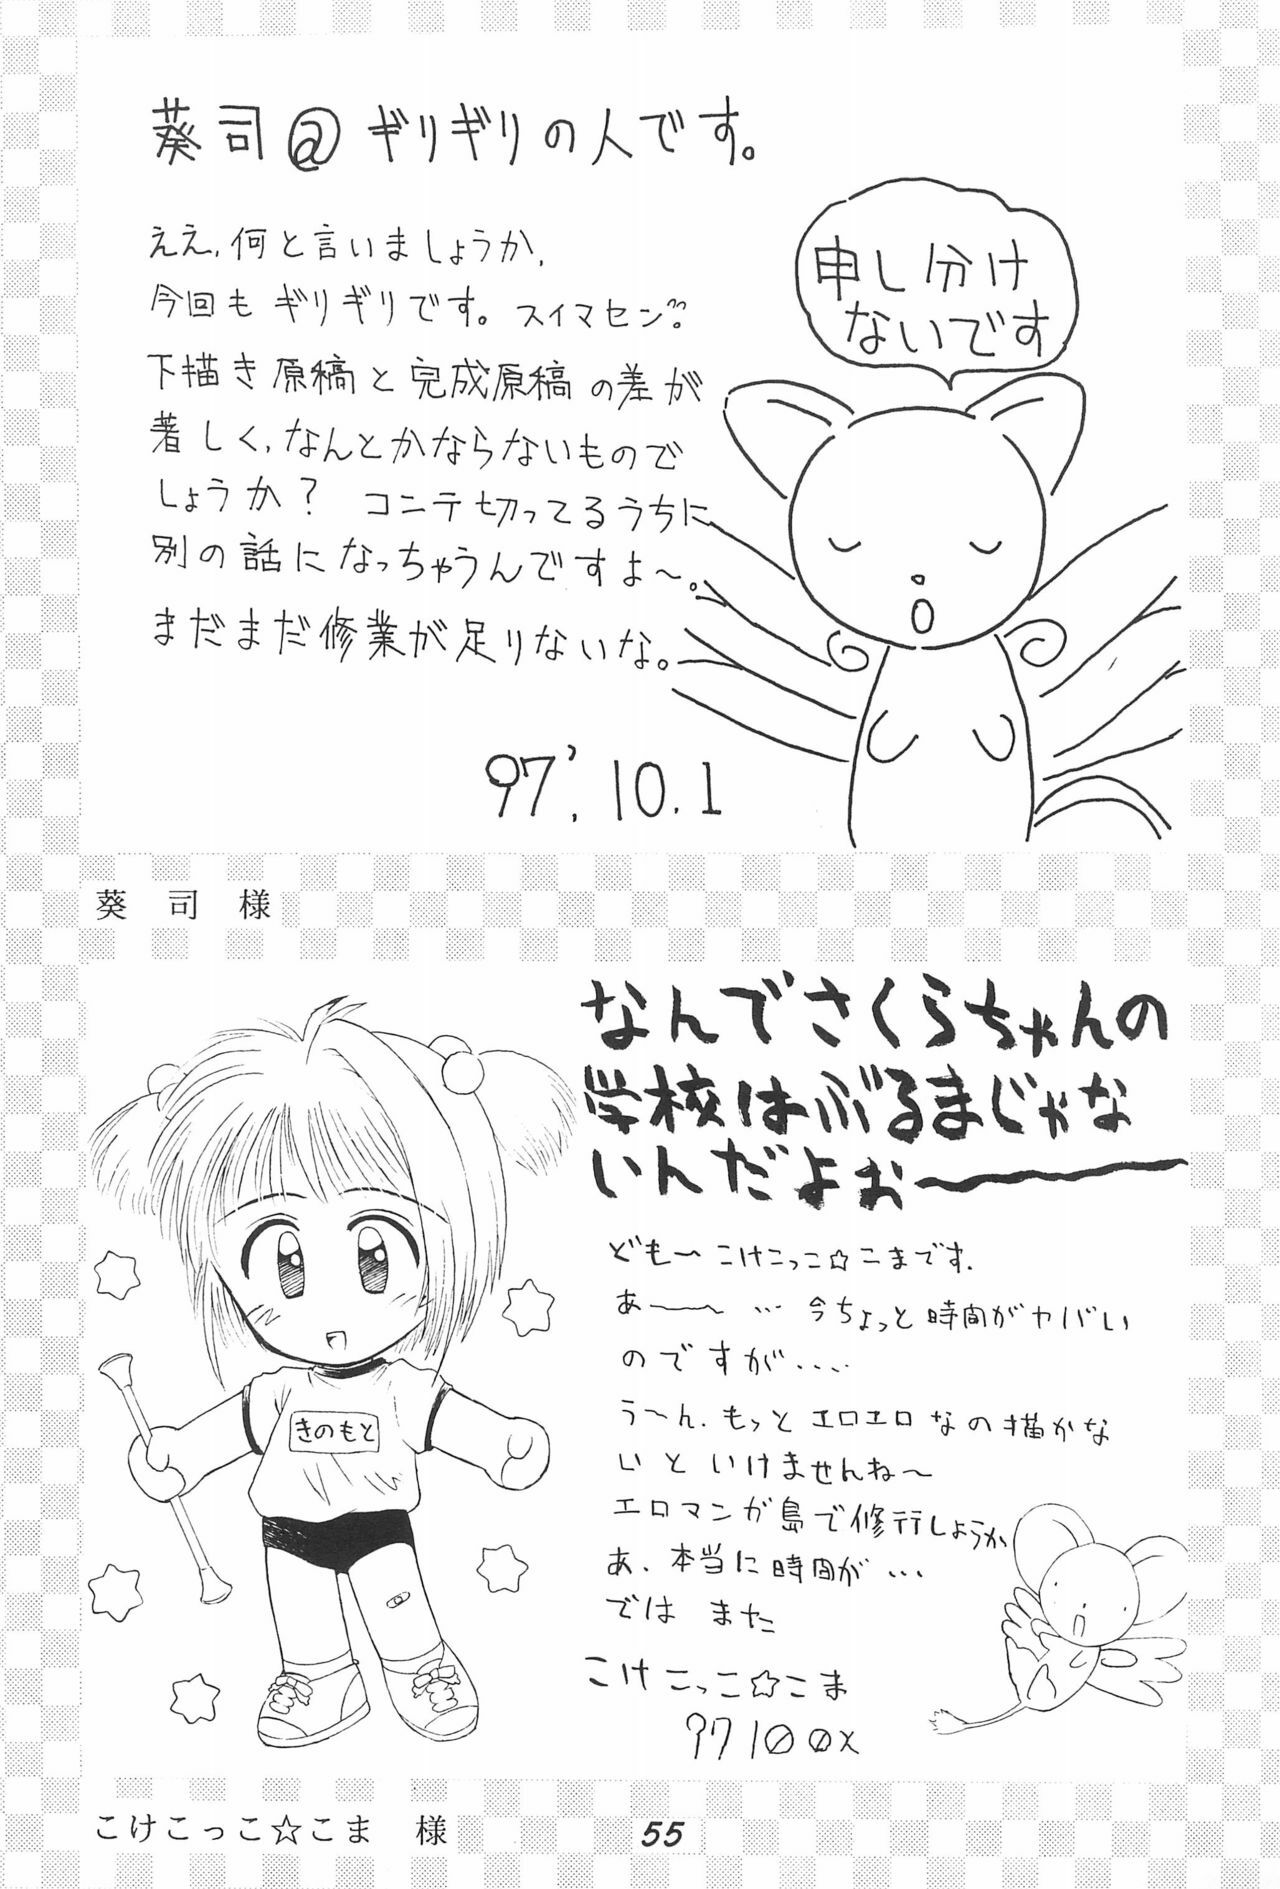 葵司@ギリギリの人です。
ええ、何と言いましょうか、
今回もギリギリです。スイマセン。
下描き原稿と完成原稿の差が
著しく、なんとかならないもので
しょうか? コンテ切ってるうちに
別の話になっちゃうんですよ〜。
まだまだ修業が足りないな。
97'.10.1
申し分け
ないです
葵 司 様
なんでさくらちゃんの
学校はぶるまじゃな
いんだよぉ〜
ども〜こけこっこ☆こまです.
あ〜 … 今ちょっと時間がヤバい
のですが....
う〜ん.もっとエロエロなの描かな
いといけませんね〜
エロマンガ島で修行しようか
あ.本当に時間が…
では また
こけこっこ☆こま
97 10 0x
きのもと
こけこっこ☆こま 様
55